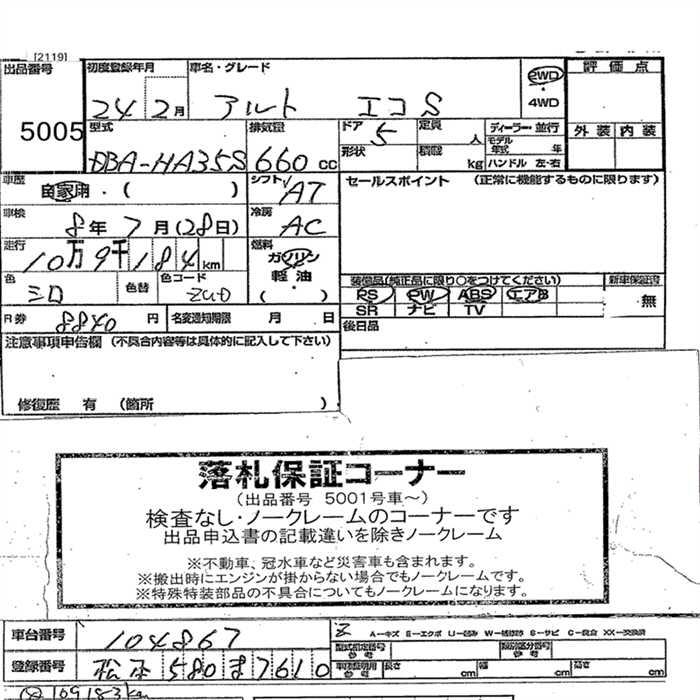 [2119]
出品番号 初度登録年月 車名・グレード 2WD・4WD 評価点
5005 24 2月 アルト エコS
型式 排気量 ドア 定員 ディーラー・並行 外装 内装
DBA-HA35S 660 CC 5 人 モデル年式 年
形状 積載 kg ハンドル 左・右
車歴 シフト セールスポイント (正常に機能するものに限ります)
自家用・( ) AT
車検 冷房
8年7月(28日) AC
走行 燃料
10万9千184km ガソリン
色 色替 色コード 軽油
シロ ( )
装備品(純正品に限り○をつけてください) 新車保証書
PS PW ABS エアB 無
SR ナビ TV
R券 8840円 名変通知期限 月 日 後日品
注意事項申告欄 (不具合内容等は具体的に記入して下さい)
修復歴 有 (箇所 )
落札保証コーナー
(出品番号 5001号車〜)
検査なし・ノークレームのコーナーです
出品申込書の記載違いを除きノークレーム
※不動車、冠水車など災害車も含まれます。
※搬出時にエンジンが掛からない場合でもノークレームです。
※特殊特装部品の不具合についてもノークレームになります。
車台番号 104867
A-キズ E-エクボ S-サビ C-腐食 XX-交換済
型式指定番号 類別区分番号
登録番号 松本 580 ま 7610
長さ cm 幅 cm 高さ cm
109183km